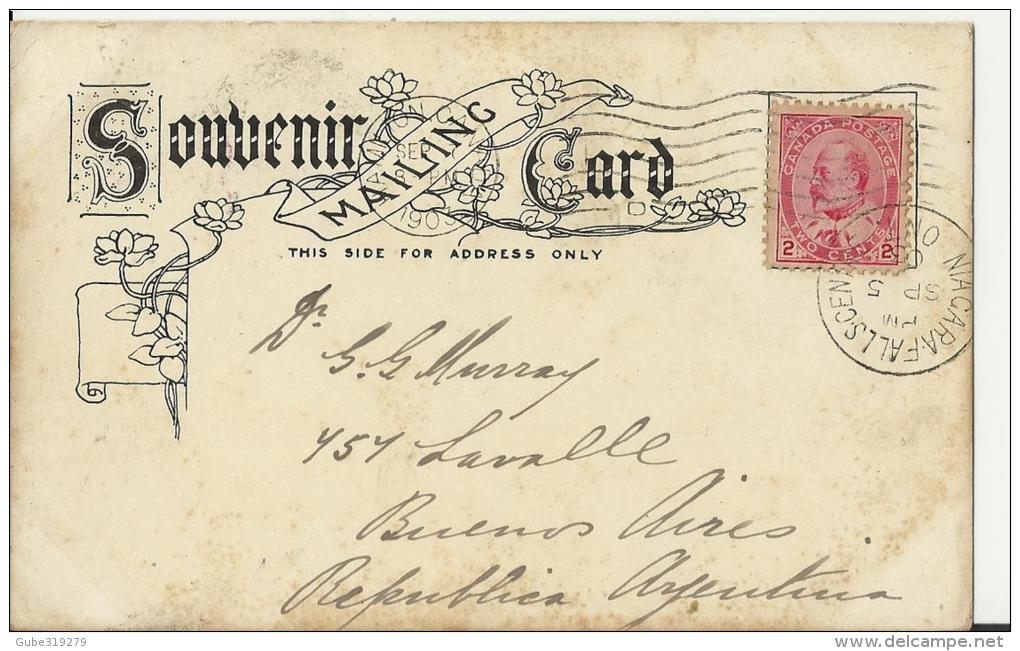 Souvenir MAILING Card
THIS SIDE FOR ADDRESS ONLY
CANADA POSTAGE
2 TWO CENTS 2
SEP
190
NIAGARA FALLS CEN
PM
SP 5
ON
Dr G. G. Murray
454 Lavalle
Buenos Aires
Republica Argentina
Gube319279
www.delcampe.net